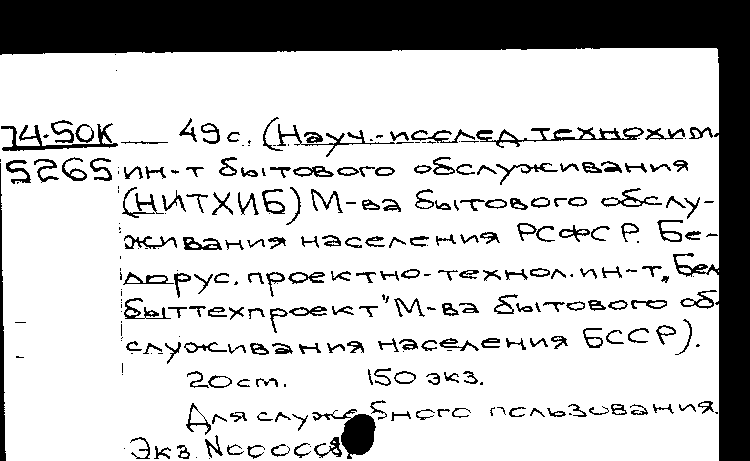 74-50К 49с. (Науч.-исслед.технохим.
5265 ин-т бытового обслуживания
(НИТХИБ) М-ва бытового обслу-
живания населения РСФСР. Бе-
лорус.проектно-технол.ин-т„Бел
быттехпроект" М-ва бытового об-
служивания населения БССР).
20 cm. 150 экз.
Для служебного пользования.
Экз. N000008